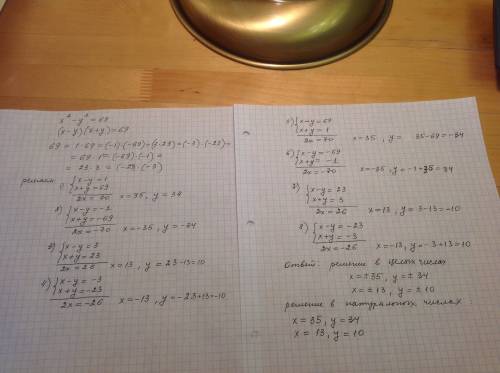 x² - y² = 69
(x-y)(x+y)=69
69 = 1·69 = (-1)·(-69) = (3·23) = (-3)·(-23) =
= 69·1 = (-69)·(-1) =
= 23·3 = (-23·(-3)
решаем:
1) { x-y=1
x+y=69
2x = 70 x=35, y=34
2) { x-y=-1
x+y=-69
2x=-70 x=-35, y=-34
3) { x-y=3
x+y=23
2x=26 x=13, y=23-13=10
4) { x-y=-3
x+y=-23
2x=-26 x=-13, y=-23+13=-10
5) { x-y=69
x+y=1
2x=70 x=35, y= 35-69=-34
6) { x-y=-69
x+y=-1
2x=-70 x=-35, y=-1+35=34
7) { x-y=23
x+y=3
2x=26 x=13, y=3-13=-10
8) { x-y=-23
x+y=-3
2x=-26 x=-13, y=-3+13=10
ответ: решение в целых числах
x=±35, y=±34
x=±13, y=±10
решение в натуральных числах
x=35, y=34
x=13, y=10